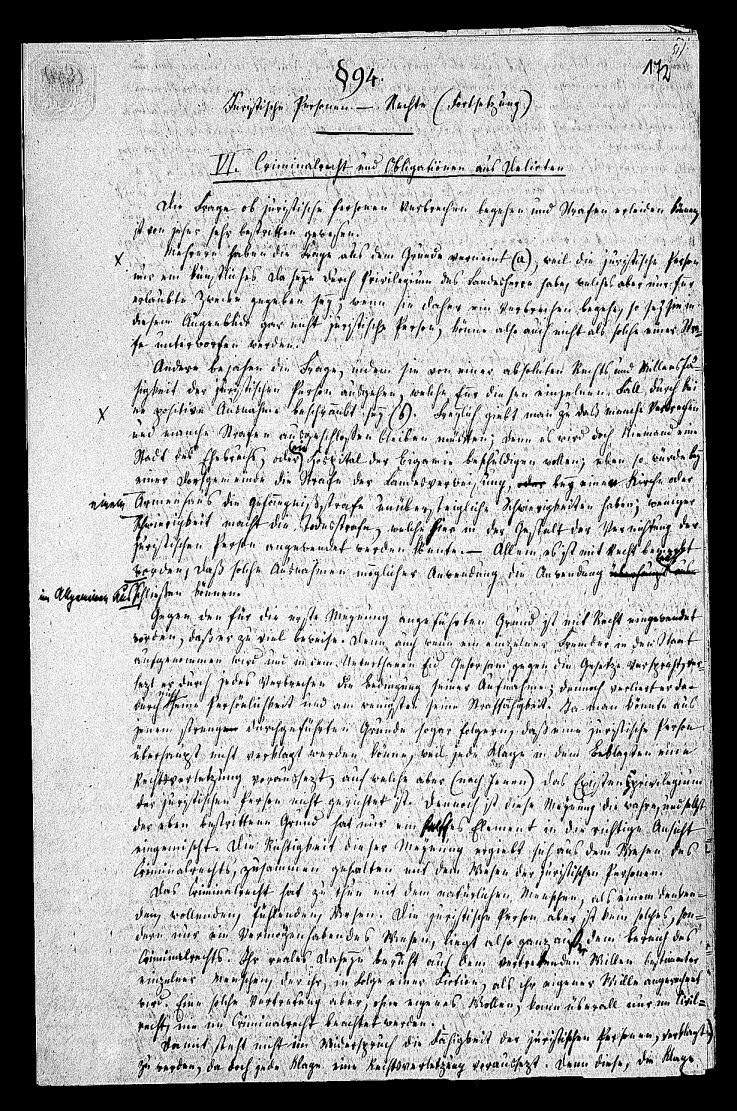 172
§ 94.
Juristische Personen. — Rechte (Fortsetzung)
VI. Criminalrecht und Obligationen aus Delicten
Die Frage ob juristische Personen Verbrechen begehen und Strafen erleiden können,
ist von jeher sehr bestritten gewesen.
Mehrere haben die Frage aus dem Grunde verneint (a), weil die juristische Person
nur ein künstliches Daseyn durch Privilegium des Landesherrn habe, welches aber nur für
erlaubte Zwecke gegeben sey; wenn sie daher ein Verbrechen begehe, so sey sie in
diesem Augenblick gar nicht juristische Person, könne also auch nicht als solche einer Stra-
fe unterworfen werden.
Andere bejahen die Frage, indem sie von einer absoluten Rechts und Willensfä-
higkeit der juristischen Person ausgehen, welche für diesen einzelnen Fall durch kei-
ne positive Ausnahme beschränkt sey (b). Freylich giebt man zu daß manche Verbrechen
und manche Strafen ausgeschlossen bleiben müssen; denn es wird doch Niemand eine
Stadt des Ehebruchs, oder ein Hospital der Bigamie beschuldigen wollen; eben so würde bey
einer Dorfgemeinde die Strafe der Landesverweisung, bey einer Kirche oder
einem Armenhaus die Gefängnißstrafe unübersteigliche Schwierigkeiten haben; weniger
Schwierigkeit macht die Todesstrafe, welche hier in der Gestalt der Vernichtung der
juristischen Person angewendet werden könnte. — Allein es ist mit Recht bemerkt
worden, daß solche Ausnahmen möglicher Anwendung die Anwendung nicht
im Allgemeinen ausschließen können.
Gegen den für die erste Meynung angeführten Grund ist mit Recht eingewendet
worden, daß er zu viel beweise. Denn auch wenn ein einzelner Fremder in den Staat
aufgenommen wird und in dem Unterthanen Eid Gehorsam gegen die Gesetze verspricht, ver-
letzt er durch jedes Verbrechen die Bedingung seiner Aufnahme; dennoch verliert er da-
durch nicht seine Persönlichkeit und am wenigsten seine Straffähigkeit. Ja man könnte aus
jenem strenge durchgeführten Grunde sogar folgern, daß eine juristische Person
überhaupt nicht verklagt werden könne, weil jede Klage in dem Beklagten eine
Rechtsverletzung voraussezt, auf welche aber (nach Jenen) das Existenzprivilegium
der juristischen Person nicht gerichtet ist. Dennoch ist diese Meynung die wahre, und selbst
der eben bestrittene Grund hat nur ein falsches Element in die richtige Ansicht
eingemischt. Die Richtigkeit dieser Meynung ergiebt sich aus dem Wesen des
Criminalrechts, zusammen gehalten mit dem Wesen der juristischen Personen.
Das Criminalrecht hat zu thun mit dem natürlichen Menschen, als einem denken-
den, wollenden, fühlenden Wesen. Die juristische Person aber ist kein solches, son-
dern nur ein Vermögenhabendes Wesen, liegt also ganz außer dem Bereich des
Criminalrechts. Ihr reales Daseyn beruht auf dem vertretenden Willen bestimmter
einzelner Menschen, der ihr, in Folge einer Fiction, als ihr eigener Wille angerechnet
wird. Eine solche Vertretung aber, ohne eigenes Wollen, kann überall nur im Civil-
recht, nie im Criminalrecht beachtet werden.
Damit steht nicht im Widerspruch die Fähigkeit der juristischen Personen, verklagt
zu werden, da doch jede Klage eine Rechtsverletzung voraussezt. Denn diese, die Klage